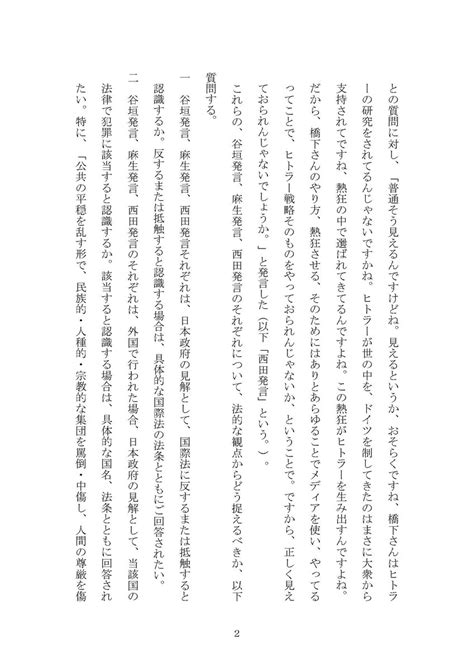 との質問に対し、「普通そう見えるんですけどね。見えるというか、おそらくですね、橋下さんはヒトラ
ーの研究をされてるんじゃないですかね。ヒトラーが世の中を、ドイツを制してきたのはまさに大衆から
支持されてですね、熱狂の中で選ばれてきてるんですよね。この熱狂がヒトラーを生み出すんですよね。
だから、橋下さんのやり方、熱狂させる、そのためにはありとあらゆることでメディアを使い、やってる
ってことで、ヒトラー戦略そのものをやっておられんじゃないか、ということで。ですから、正しく見え
ておられんじゃないでしょうか。」と発言した（以下「西田発言」という。）。
これらの、谷垣発言、麻生発言、西田発言のそれぞれについて、法的な観点からどう捉えるべきか、以下
質問する。
一　谷垣発言、麻生発言、西田発言それぞれは、日本政府の見解として、国際法に反するまたは抵触すると
認識するか。反するまたは抵触すると認識する場合は、具体的な国際法の法条とともにご回答されたい。
二　谷垣発言、麻生発言、西田発言のそれぞれは、外国で行われた場合、日本政府の見解として、当該国の
法律で犯罪に該当すると認識するか。該当すると認識する場合は、具体的な国名、法条とともに回答され
たい。特に、「公共の平穏を乱す形で、民族的・人種的・宗教的な集団を罵倒・中傷し、人間の尊厳を傷
2